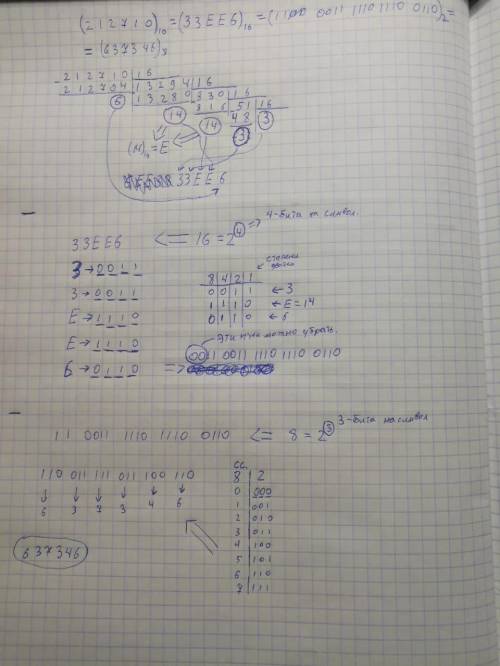 (212710)₁₀ = (33EE6)₁₆ = (11 0011 1110 1110 0110)₂ =
= (637346)₈
212710 | 16
212704 | 13294 | 16
6 13280 830 | 16
14 816 51 | 16
14 48 3
3
(14)₁₀ = E
33EE6
33EE6 <= 16 = 2⁴ => 4-бита на символ.
3 → 0011
3 → 0011
E → 1110
E → 1110
6 → 0110 =>
степени двойки
8 4 2 1
0 0 1 1 ← 3
1 1 1 0 ← E = 14
0 1 1 0 ← 6
Эти нули можно убрать.
0011 0011 1110 1110 0110
11 0011 1110 1110 0110 <= 8 = 2³ 3-бита на символ
110 011 111 011 100 110
6 3 7 3 4 6
637346
СС.
8 2
0 000
1 001
2 010
3 011
4 100
5 101
6 110
7 111